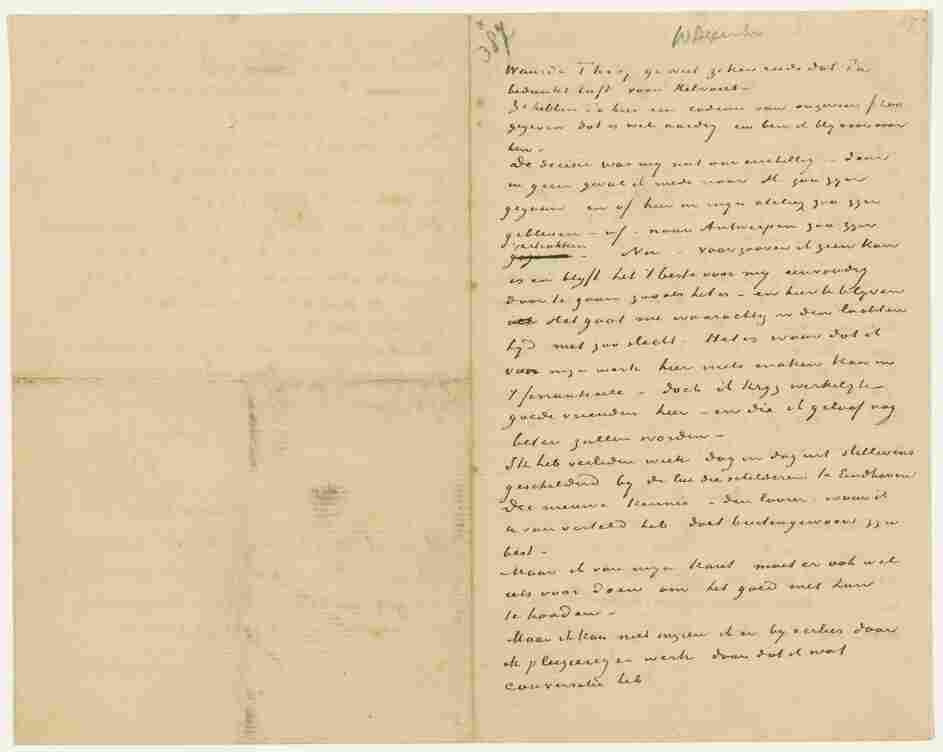 387
Waarde Theo, ge moet zeker eens dat Pa
bedankt laat voor Helvoet.
Ze hebben Pa hier een cadeau van
gegeven dat is wel aardig en ben er bly voor voor
hen.
De was my niet onverschillig – daar
in geen geval ik mede naar H. zou zyn
gegaan en of hier in myn atelier zou zyn
gebleven – of – naar Antwerpen zou zyn
vertrokken
– Nu – voorzoover ik zien kan
is en blyft het 't beste voor my eenvoudig
door te gaan zooals het is – en hier te blyven
Het gaat me waarachtig in den laatsten
tyd niet zoo slecht – Het is waar dat ik
van myn werk hier niets maken kan in
't financieele – doch ik kryg werkelyk
goede vrienden hier – en die ik geloof nog
beter zullen worden –
Ik heb verleden week dag in dag uit stillevens
geschilderd by de lui die schilderen te Eindhoven
Die nieuwe kennis – den looier – waar ik
U van verteld heb doet buitengewoon zyn
best –
Maar ik van myn kant moet er ook wel
iets voor doen om het goed met hun
te houden –
Maar ik kan niet inzien ik er by verlies daar
ik pleizierig er werk door dat ik wat
conversatie heb